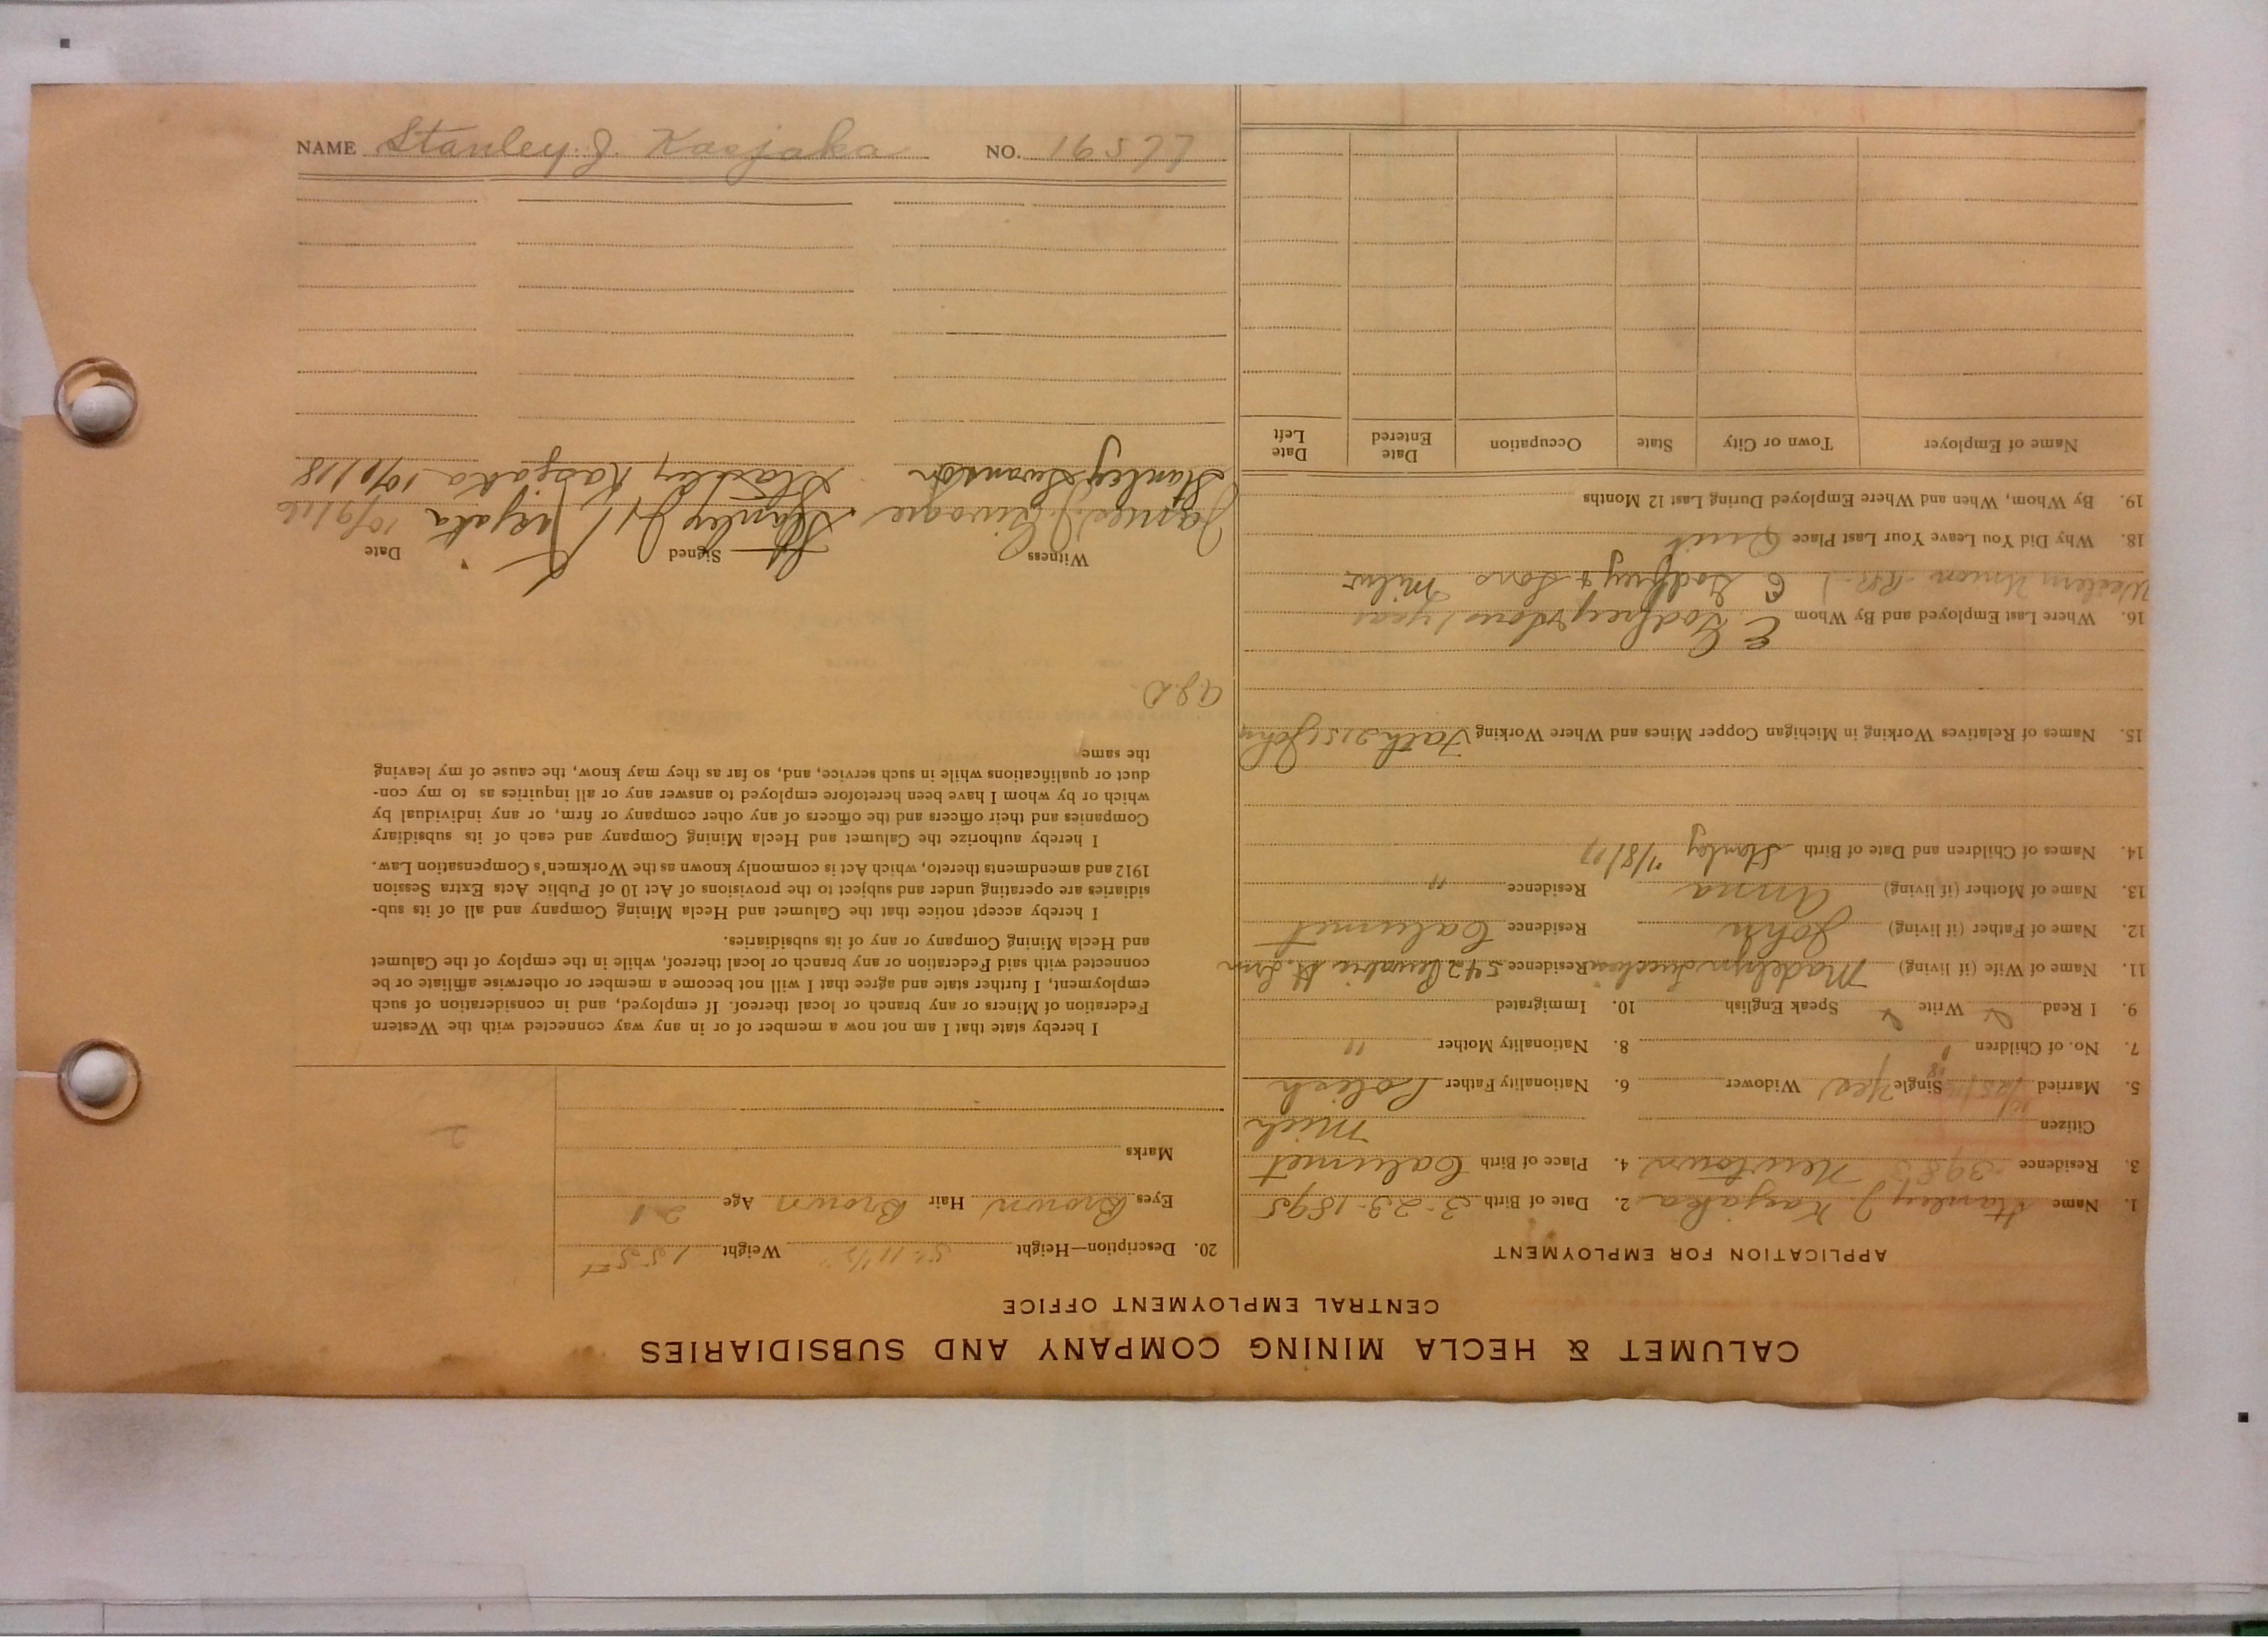 NAME Stanley J. Kasjaka NO. 16577
CALUMET & HECLA MINING COMPANY AND SUBSIDIARIES
CENTRAL EMPLOYMENT OFFICE
APPLICATION FOR EMPLOYMENT
1. Name Stanley J. Kasjaka 2. Date of Birth 3-23-1895
3. Residence 3983 Newtown 4. Place of Birth Calumet
Citizen Mich
5. Married Single Yes Widower 6. Nationality Father Polish
7. No. of Children 8. Nationality Mother "
9. I Read Write Speak English 10. Immigrated
11. Name of Wife (if living) Madelyn Residence 542 St.
12. Name of Father (if living) John Residence Calumet
13. Name of Mother (if living) Anna Residence "
14. Names of Children and Date of Birth Stanley
15. Names of Relatives Working in Michigan Copper Mines and Where Working Fath 2151 John
16. Where Last Employed and By Whom E. Godfrey & Sons 1 year
Western Union E Godfrey & Sons Milw
18. Why Did You Leave Your Last Place Quit
19. By Whom, When and Where Employed During Last 12 Months
Name of Employer Town or City State Occupation Date Entered Date Left
20. Description—Height 5' 11 1/2" Weight 155
Eyes Brown Hair Brown Age 21
Marks
2
I hereby state that I am not now a member of or in any way connected with the Western
Federation of Miners or any branch or local thereof. If employed, and in consideration of such
employment, I further state and agree that I will not become a member or otherwise affiliate or be
connected with said Federation or any branch or local thereof, while in the employ of the Calumet
and Hecla Mining Company or any of its subsidiaries.
I hereby accept notice that the Calumet and Hecla Mining Company and all of its sub-
sidiaries are operating under and subject to the provisions of Act 10 of Public Acts Extra Session
1912 and amendments thereto, which Act is commonly known as the Workmen's Compensation Law.
I hereby authorize the Calumet and Hecla Mining Company and each of its subsidiary
Companies and their officers and the officers of any other company or firm, or any individual by
which or by whom I have been heretofore employed to answer any or all inquiries as to my con-
duct or qualifications while in such service, and, so far as they may know, the cause of my leaving
the same
Witness Signed Date
James J. Stanley J. Kasjaka 10/9/16
Stanley Swanson Stanley Kasjaka 10/1/18